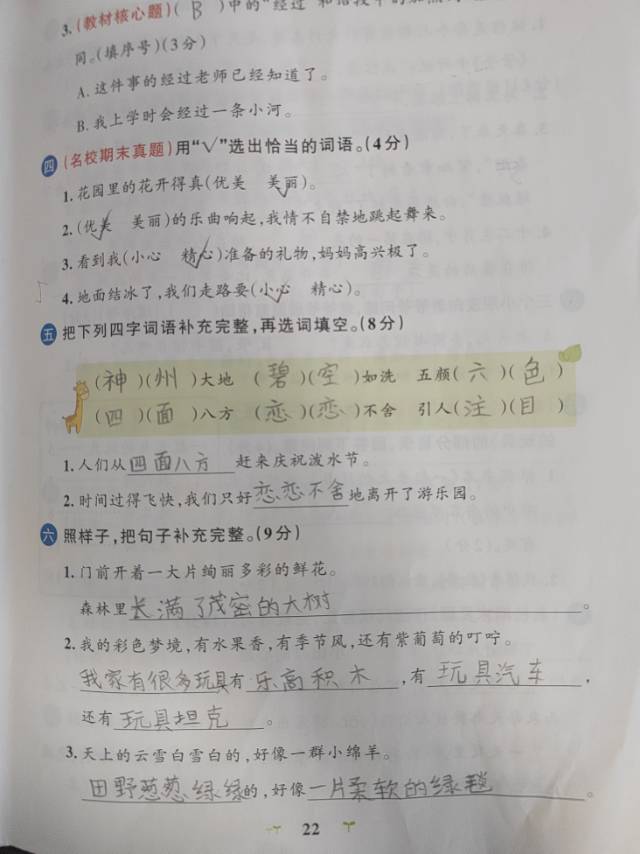 3.(教材核心题)( B )中的“经过”和
同。(填序号)(3分)
A. 这件事的经过老师已经知道了。
B. 我上学时会经过一条小河。
四 (名校期末真题)用“√”选出恰当的词语。(4分)
1. 花园里的花开得真(优美 美丽)。
2. (优美 美丽)的乐曲响起,我情不自禁地跳起舞来。
3. 看到我(小心 精心)准备的礼物,妈妈高兴极了。
4. 地面结冰了,我们走路要(小心 精心)。
五 把下列四字词语补充完整,再选词填空。(8分)
(神)(州)大地 (碧)(空)如洗 五颜(六)(色)
(四)(面)八方 (恋)(恋)不舍 引人(注)(目)
1. 人们从四面八方赶来庆祝泼水节。
2. 时间过得飞快,我们只好恋恋不舍地离开了游乐园。
六 照样子,把句子补充完整。(9分)
1. 门前开着一大片绚丽多彩的鲜花。
森林里长满了茂密的大树。
2. 我的彩色梦境,有水果香,有季节风,还有紫葡萄的叮咛。
我家有很多玩具有乐高积木,有玩具汽车,
还有玩具坦克。
3. 天上的云雪白雪白的,好像一群小绵羊。
田野葱葱绿绿的,好像一片柔软的绿毯。
22